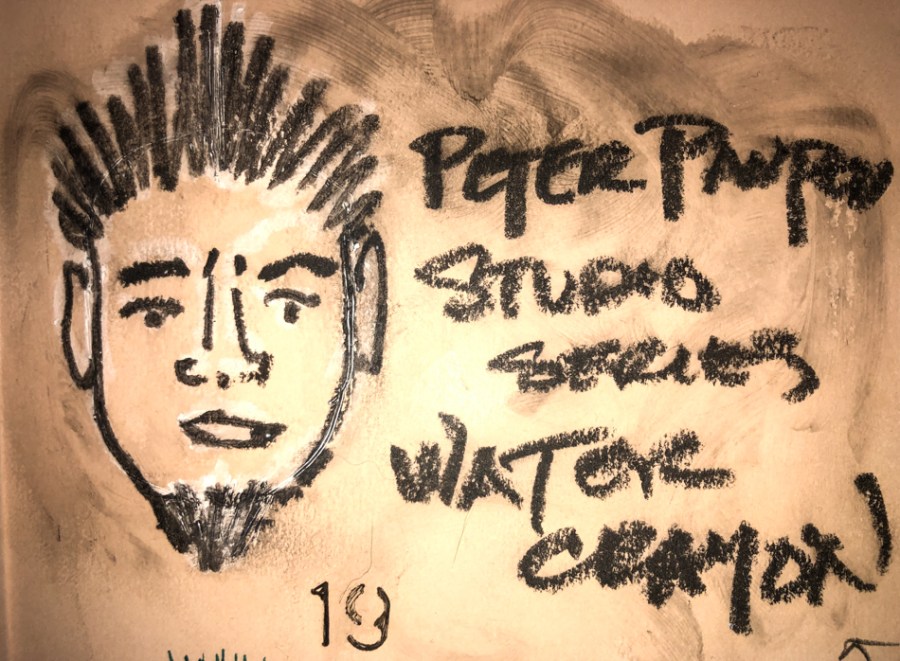 PETER PAWPOW
STUDIO
SERIES
WATER
CRAYON
19